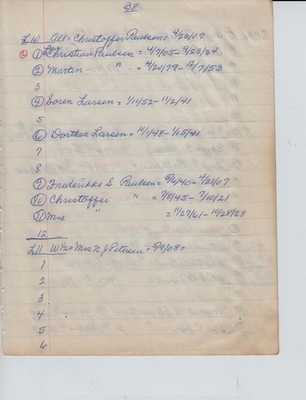 28
L10 All = Christoffer Paulsen = 4/20/07
① Christian Paulsen = 4/7/05 - 4/23/34
② Martin " = 4/20/79 - 12/7/53
3
④ Soren Larsen = 1/11/52 - 11/2/41
5
⑥ Dorthea Larsen = 11/1/48 - 1/15/41
7
8
⑨ Frederikke S Paulsen = - 4/21/07
⑩ Christoffer " = - 7/10/21
⑪ Mrs " = 11/27/61 - 10/28/28
12
L11 W1/2 = Mrs N J Petersen =
1
2
3
4
5
6